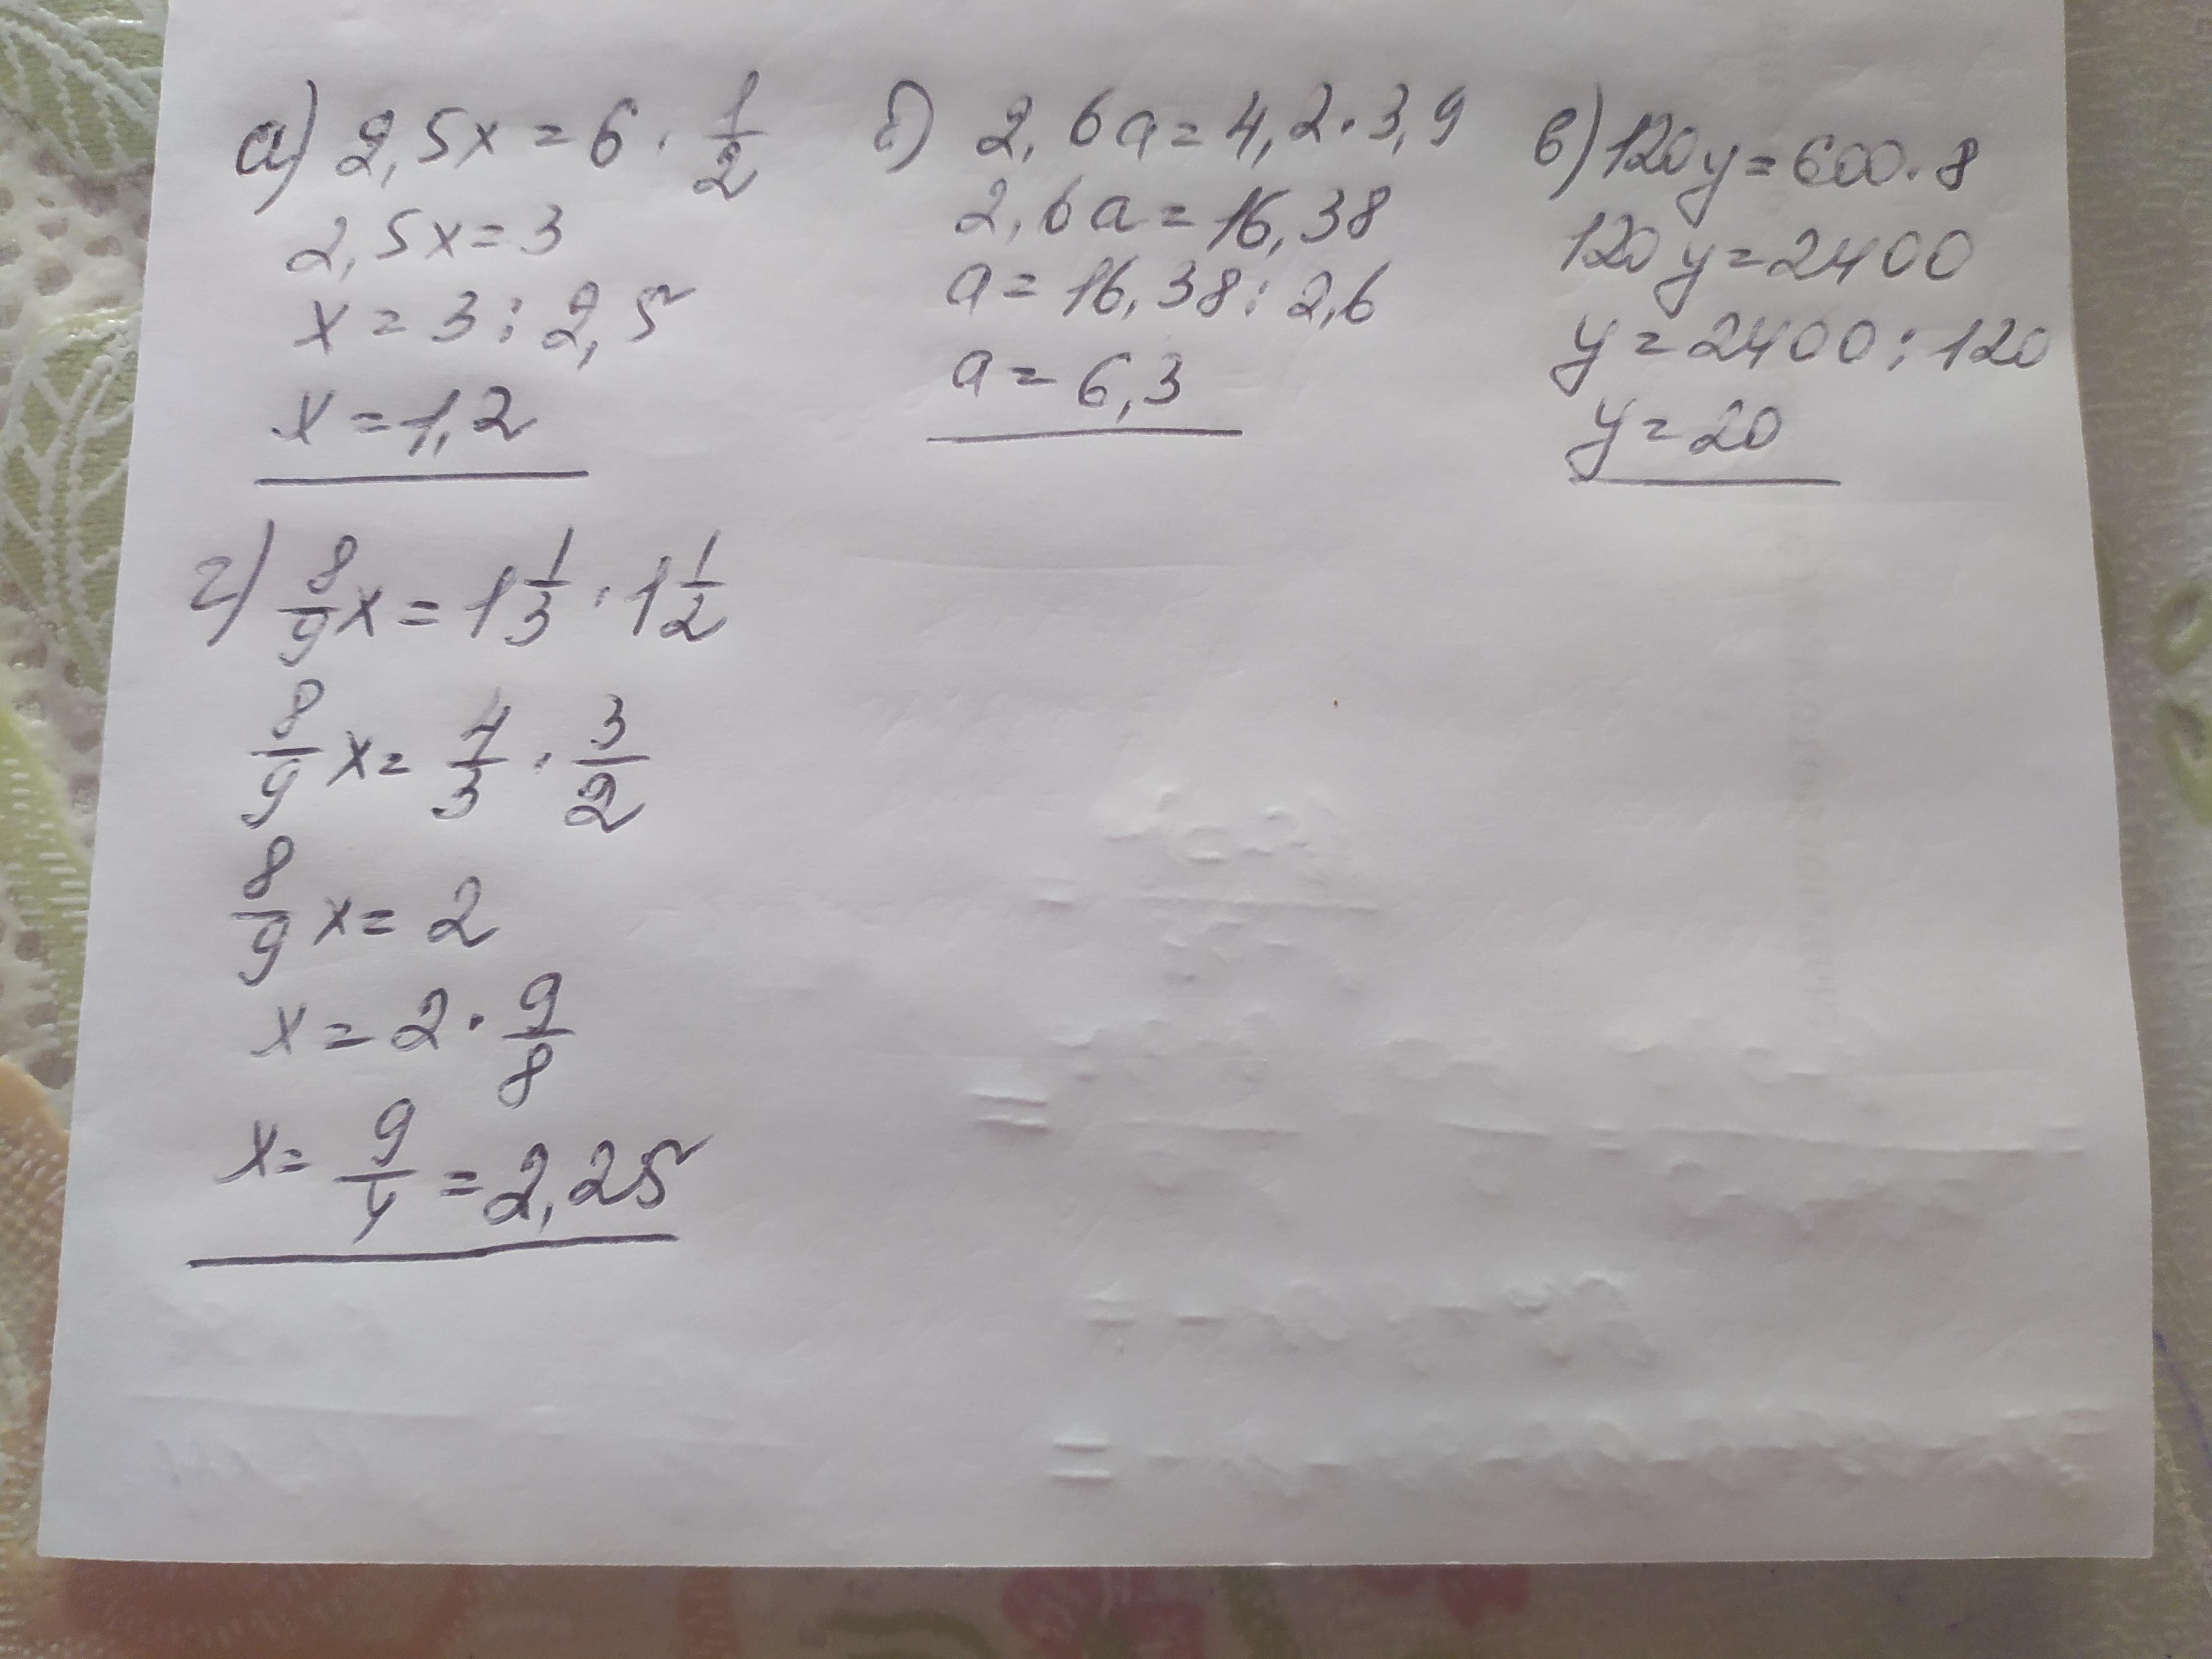 а) 2,5x = 6 · 1/2
2,5x = 3
x = 3 : 2,5
x = 1,2
б) 2,6a = 4,2 · 3,9
2,6a = 16,38
a = 16,38 : 2,6
a = 6,3
в) 120y = 600 · 8
120y = 2400
y = 2400 : 120
y = 20
г) 8/9 x = 1 1/3 · 1 1/2
8/9 x = 4/3 · 3/2
8/9 x = 2
x = 2 · 9/8
x = 9/4 = 2,25